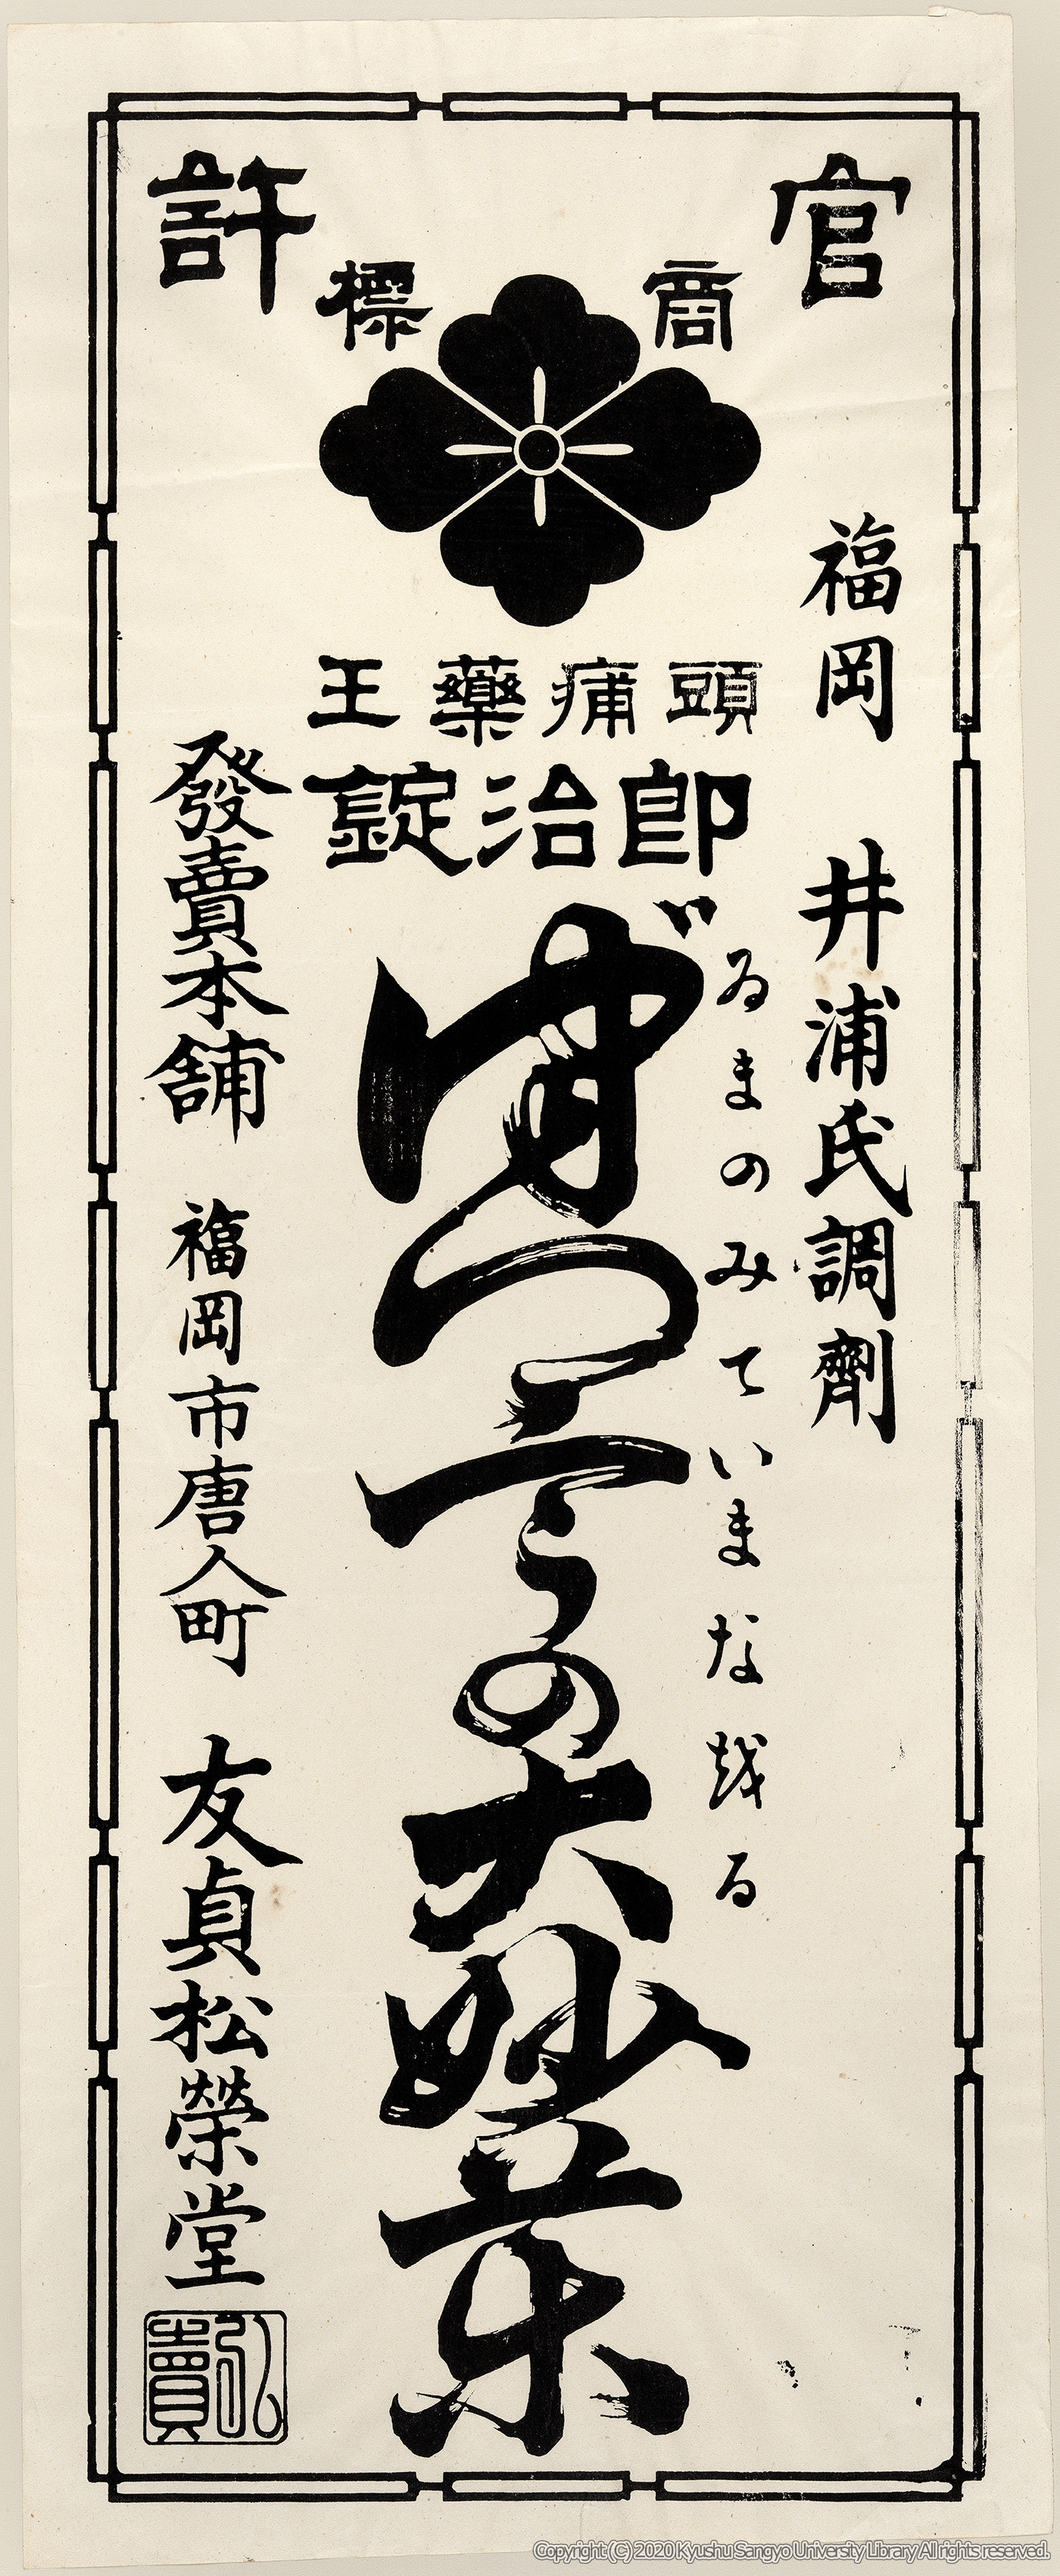 官許
商標
頭痛藥王
即治錠
福岡 井浦氏調劑
ゐまのみていまな越る
づつうの大妙薬
發賣本舗 福岡市唐人町 友貞松榮堂
弘賣
Copyright (C) 2020 Kyushu Sangyo University Library All rights reserved.